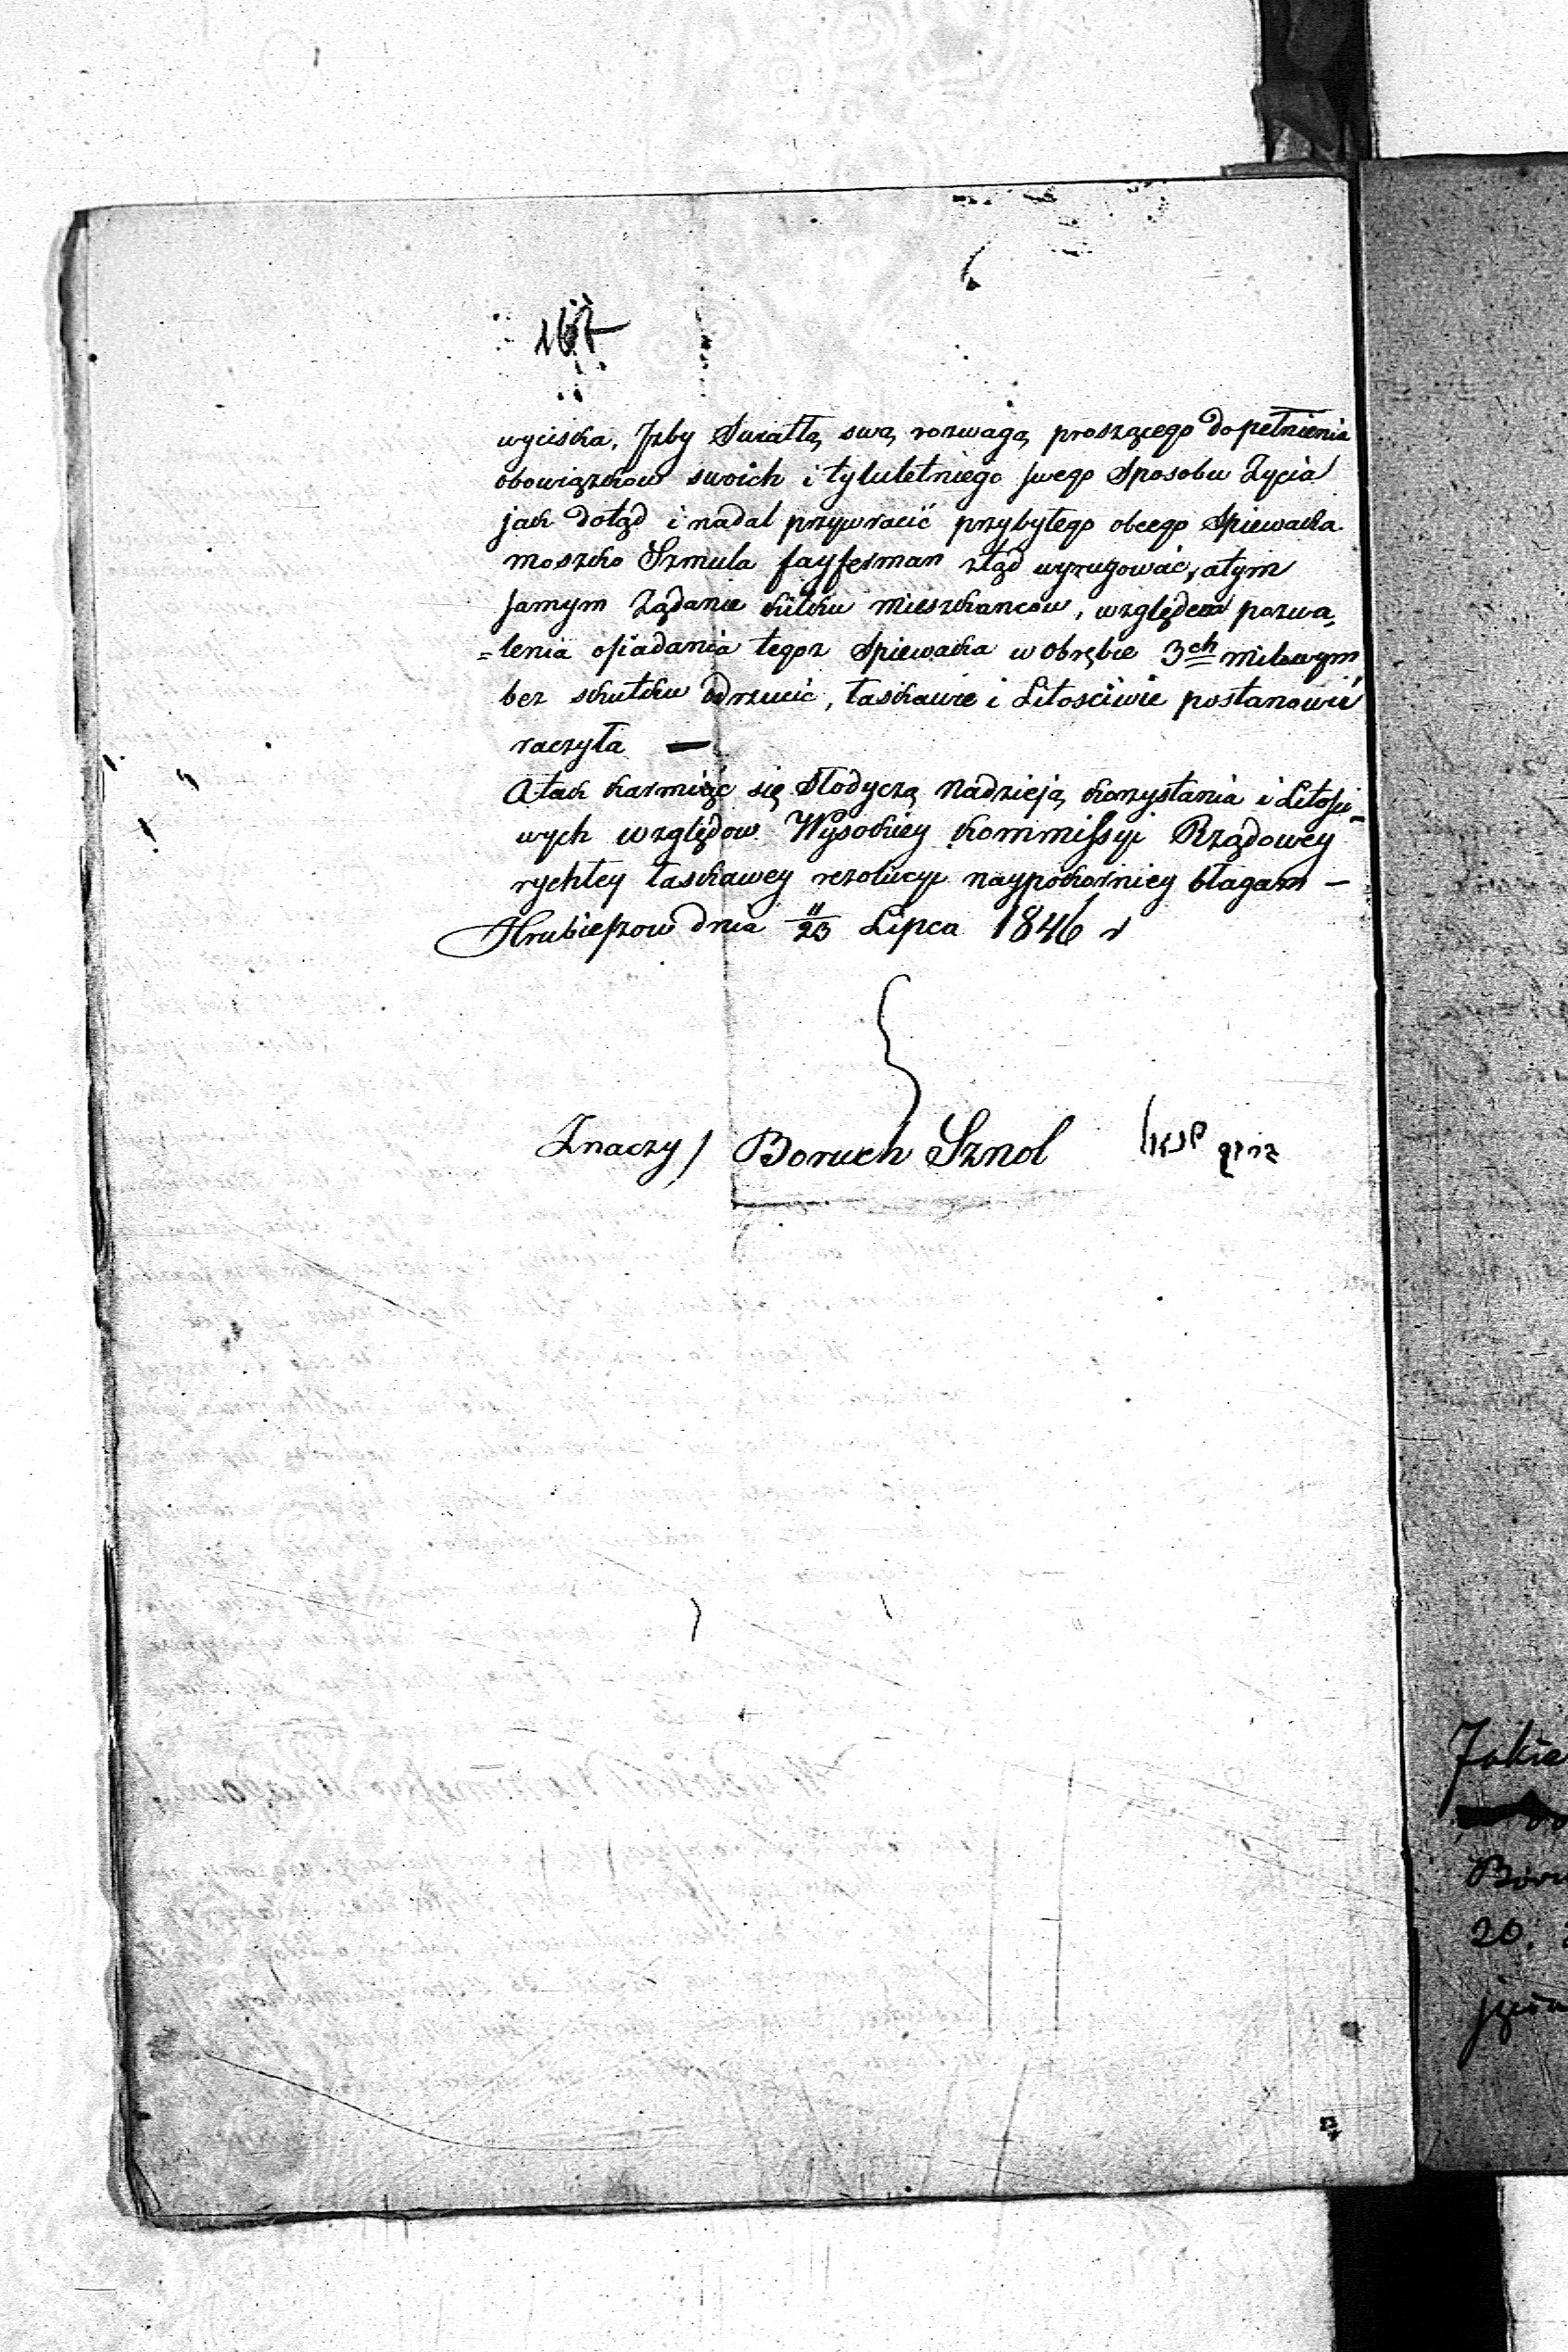 167
wyciska, Jzby Swiatłą swą rozwagą proszącego do pełnienia
obowiązkow swoich i tyluletniego swego Sposobu Zycia
jak dotąd i nadal przywrocić przybyłego obcego Spiewaka
moszko Szmula fayferman ztąd wyrugować, atym
samym Ządanie kilku mieszkancow, względem pozwa,
=lenia osiadania tegoz Spiewaka w obrębie 3ch milowym
bez skutku odrzucić, łaskawie i Litosciwie postanowić
raczyła —
A tak karmiąc się Słodyczą Nadzieją korzystania i Litości-
wych względow Wysokiey Kommissyi Rządowey
rychłey łaskawey rezolucyi naypokorniey błagam —
Hrubieszow dnia 11/23 Lipca 1846 r
Znaczy / Boruch Sznol ברוך
Jakie
20.